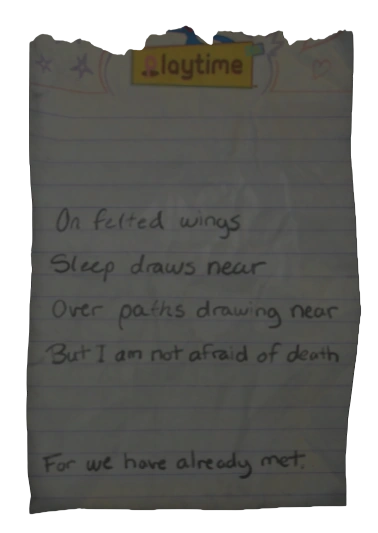 Playtime
On felted wings
Sleep draws near
Over paths drawing near
But I am not afraid of death
For we have already met.